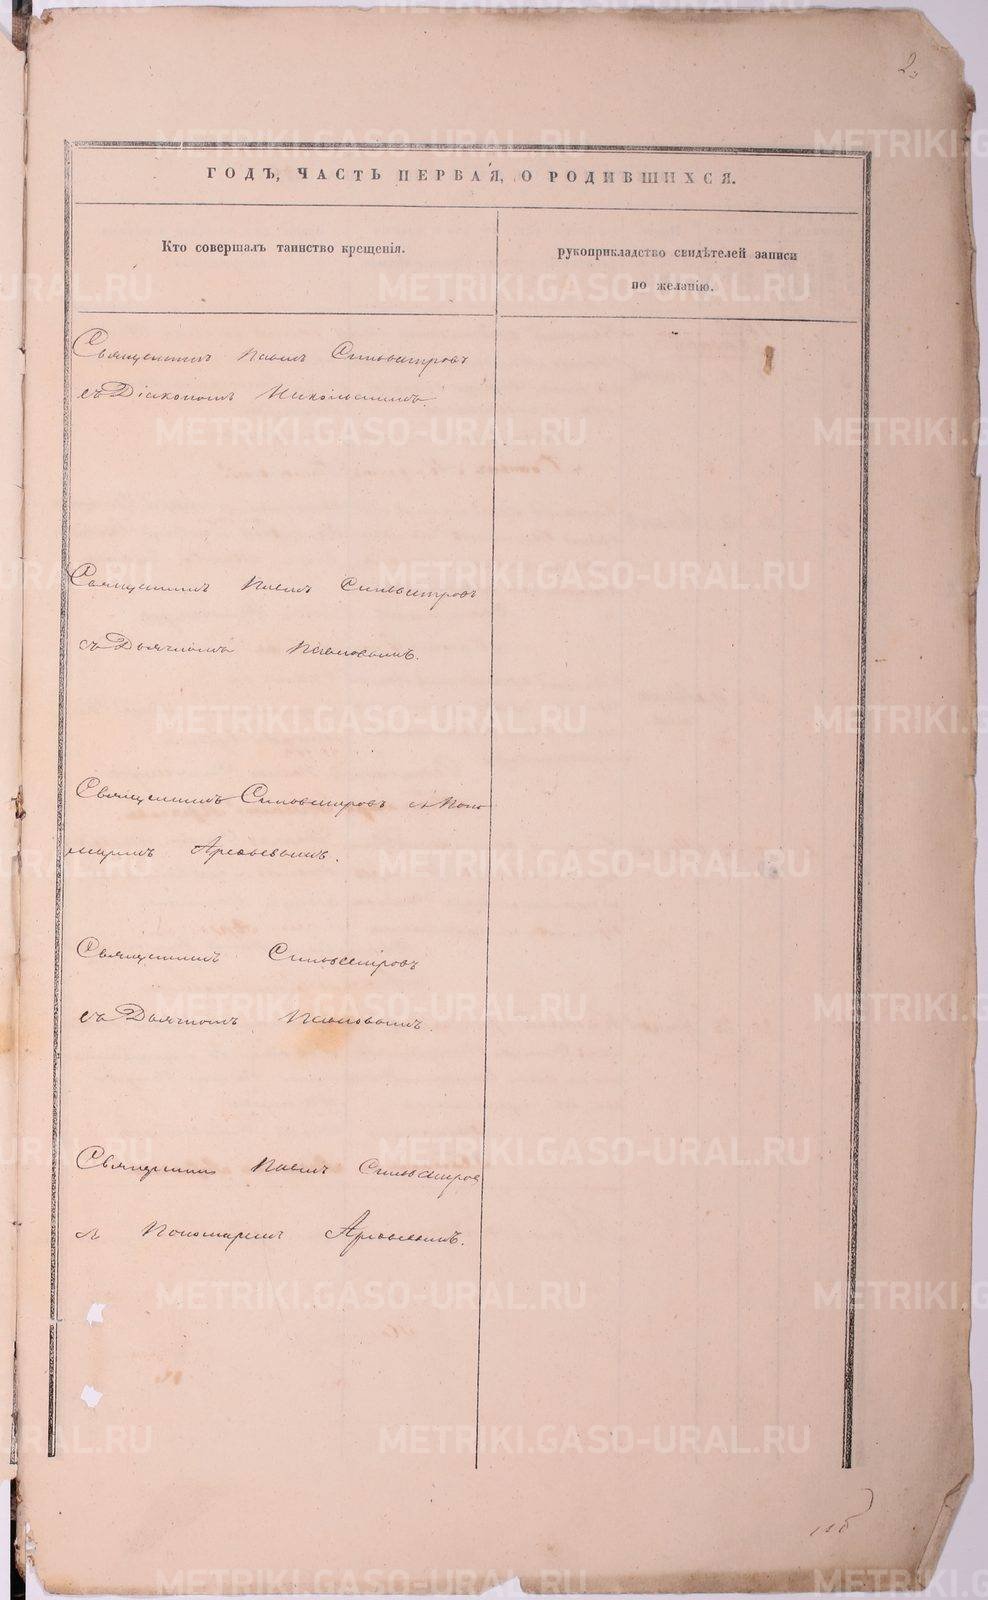 2
ГОДЪ, ЧАСТЬ ПЕРВАЯ, О РОДИВШИХСЯ.
Кто совершалъ таинство крещенія.
рукоприкладство свидѣтелей записи
по желанію.
Священникъ Павелъ Сильвестровъ
съ Діакономъ Никольскимъ.
Священникъ Павелъ Сильвестровъ
съ Дьячкомъ Павловымъ.
Священникъ Сильвестровъ съ Поно
маремъ Арсеньевымъ.
Священникъ Сильвестровъ
съ Дьячкомъ Павловымъ.
Священникъ Павелъ Сильвестров
съ Пономаремъ Арсеньевымъ.
METRIKI.GASO-URAL.RU